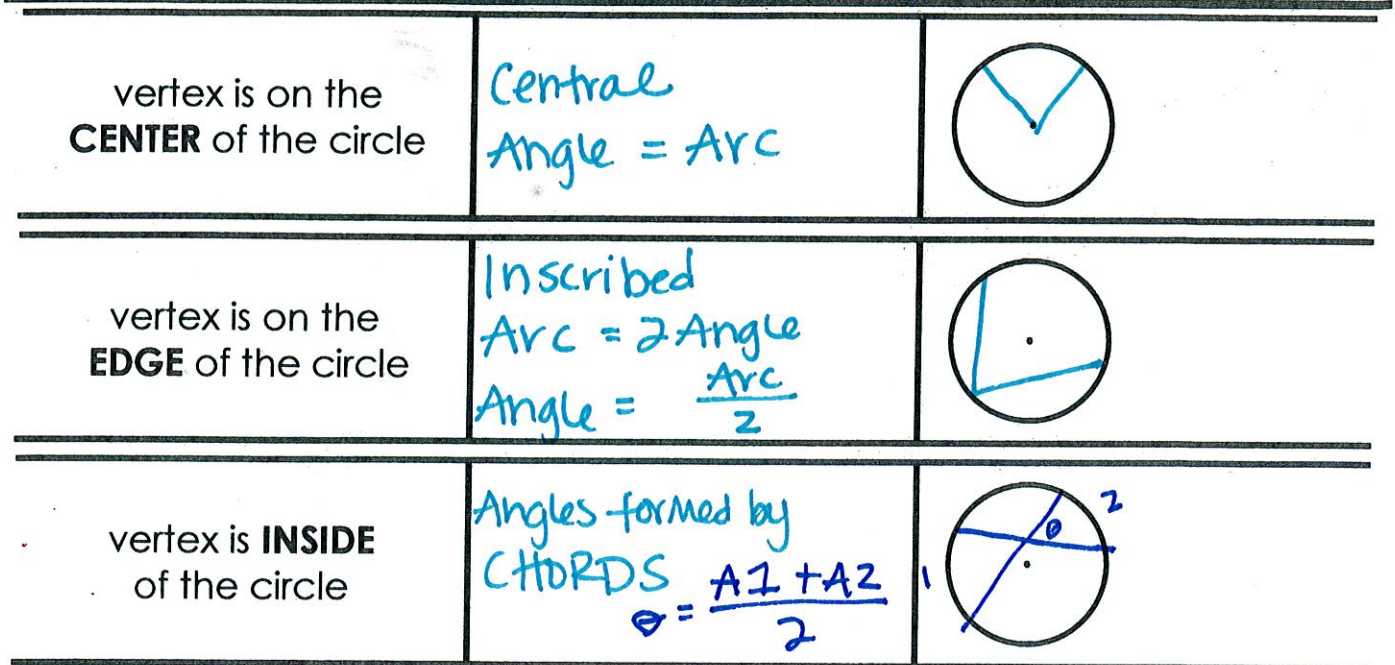 vertex is on the
CENTER of the circle
Central
Angle = Arc
vertex is on the
EDGE of the circle
Inscribed
Arc = 2 Angle
Angle = Arc
2
vertex is INSIDE
of the circle
Angles formed by
CHORDS
θ = A1 + A2
2
1
2
θ